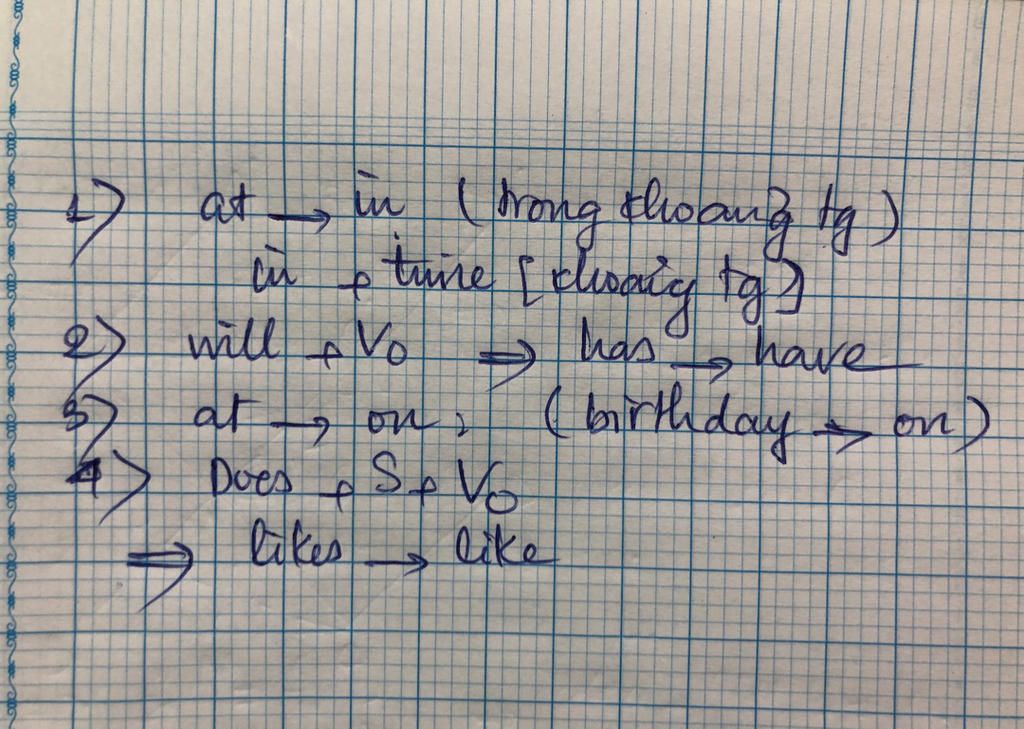 1) at → in (trong khoảng tg)
in + time [khoảng tg]
2) will + V₀ ⇒ has → have
3) at → on, (birthday → on)
4) Does + S + V₀
⇒ likes → like